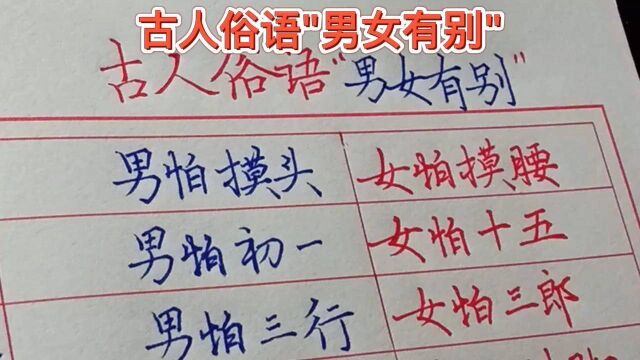 古人俗语"男女有别"
古人俗语"男女有别"
男怕摸头 女怕摸腰
男怕初一 女怕十五
男怕三行 女怕三郎